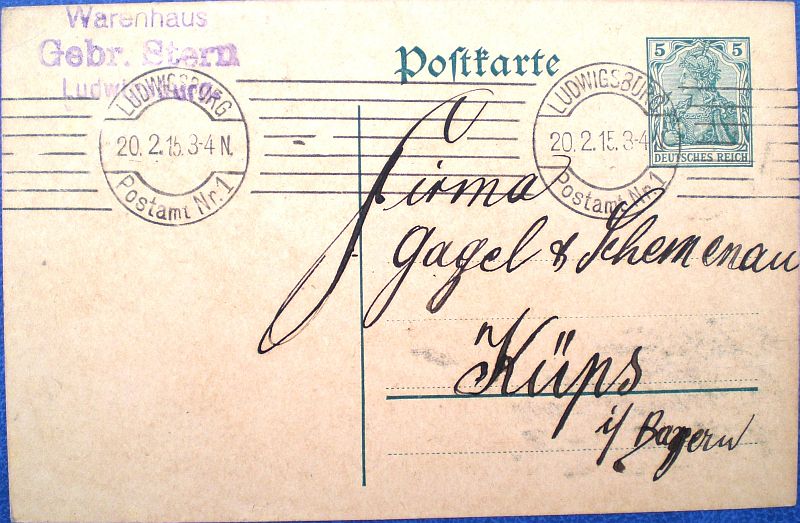 Warenhaus
Gebr. Stern
Ludwigsburg
Postkarte
5 5
DEUTSCHES REICH
LUDWIGSBURG
20. 2. 15. 3-4 N.
Postamt Nr. 1
LUDWIGSBURG
20. 2. 15. 3-4
Postamt Nr. 1
Firma
Gagel & Schemenau
Küps
i/ Bayern